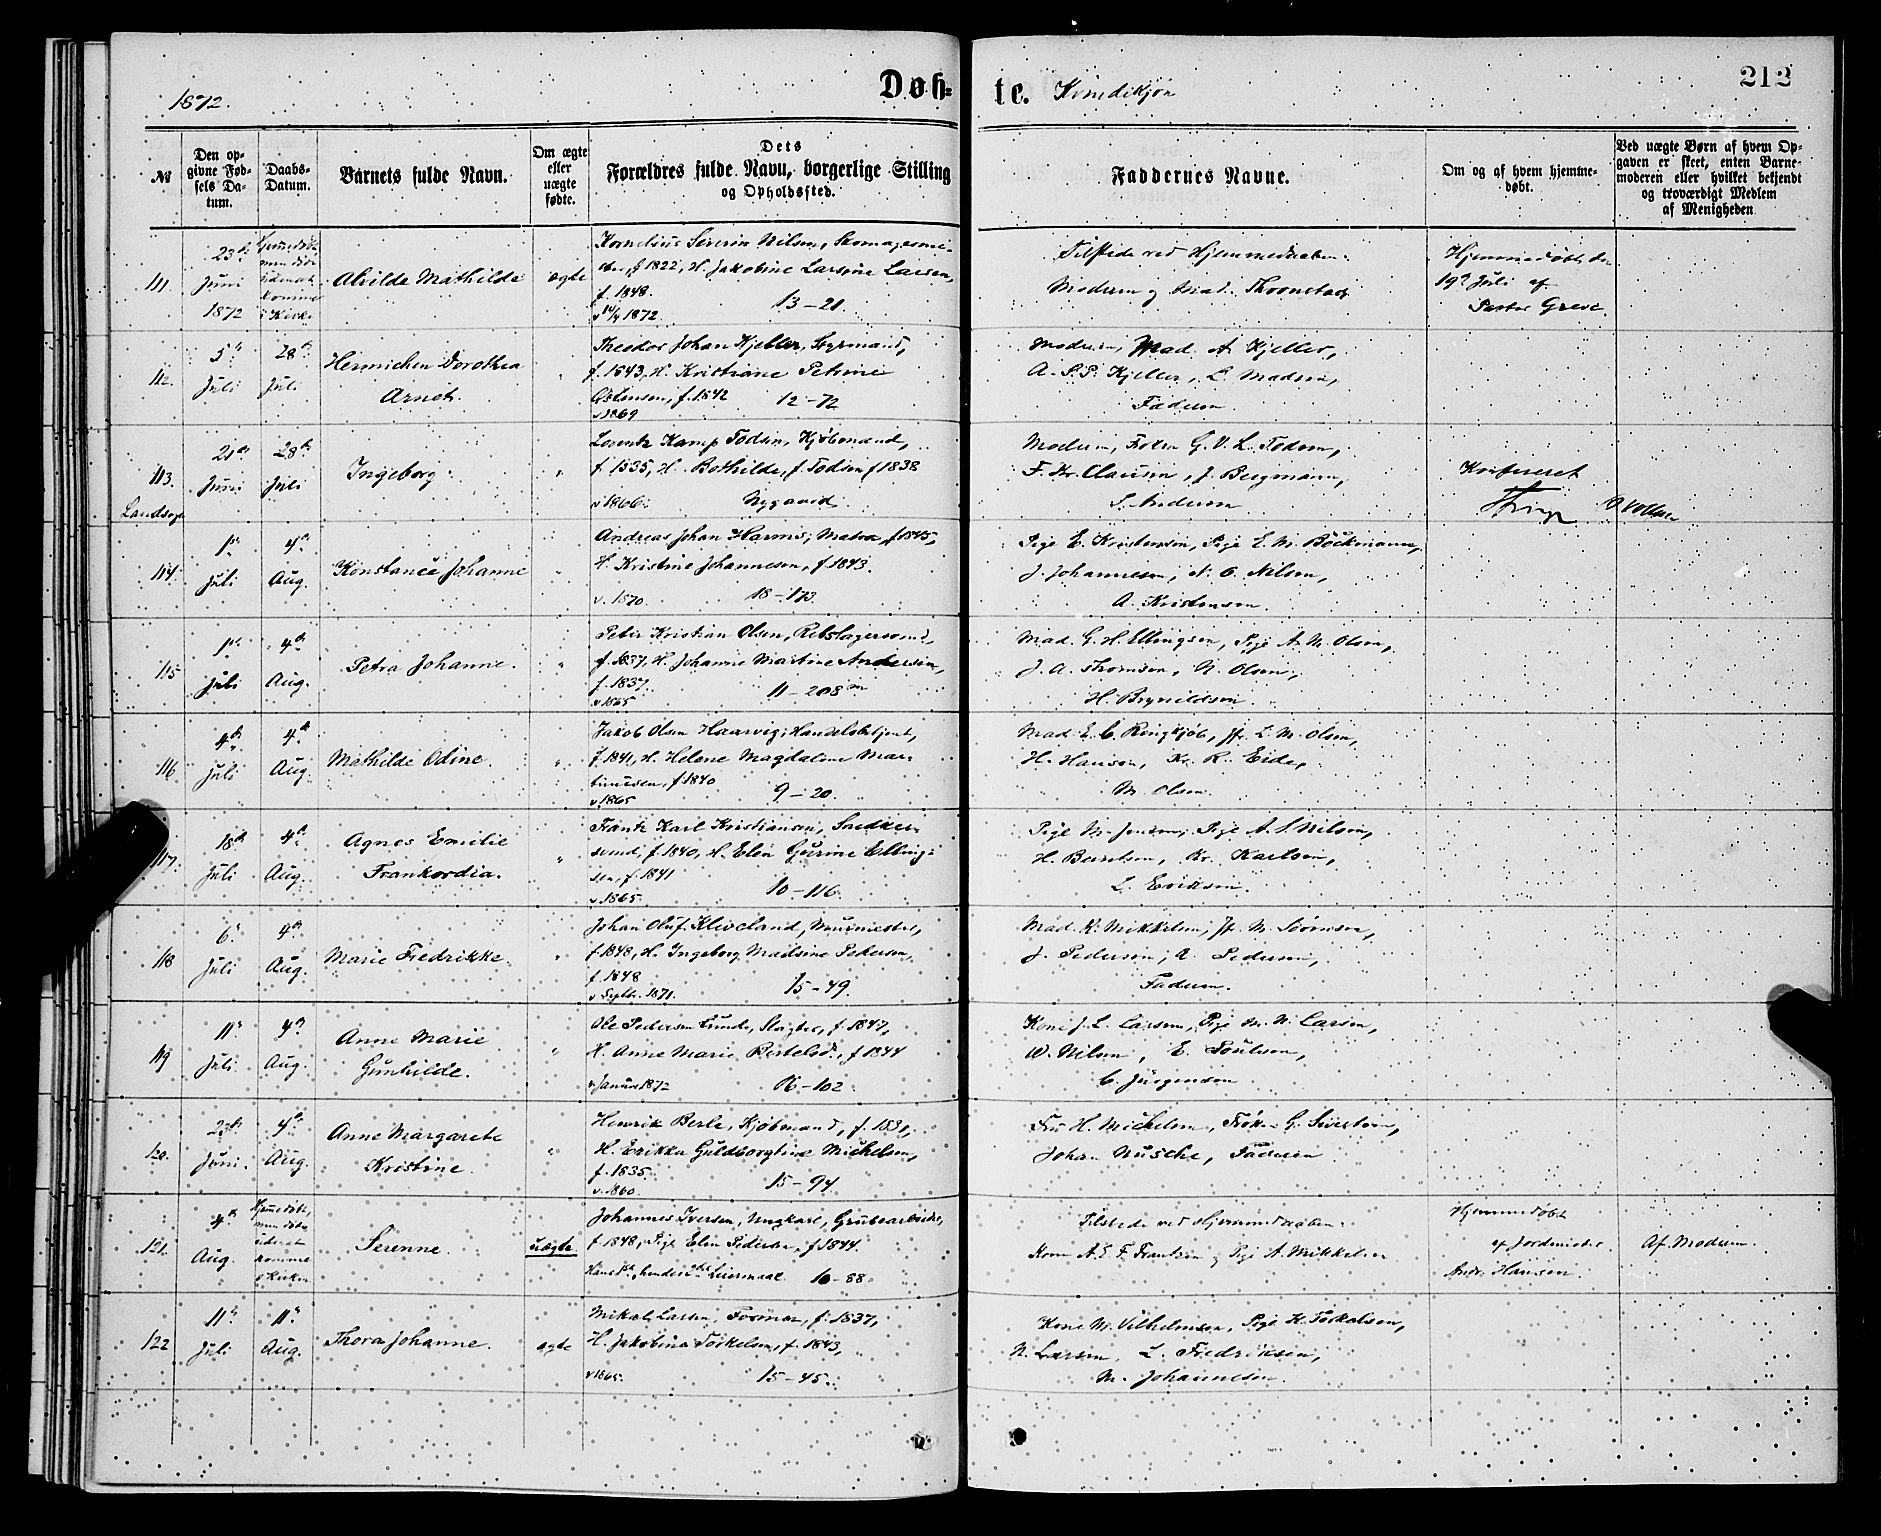 1872.
Døb=
te. Kvindekjøn
212
№
Den op=
givne Fød=
sels Da=
tum.
Daabs=
Datum.
Barnets fulde Navn.
Om ægte
eller
uægte
fødte.
Dets
Forældres fulde Navn, borgerlige Stilling
og Opholdssted.
Faddernes Navne.
Om og af hvem hjemme=
døbt.
Ved uægte Børn af hvem Op=
gaven er skeet, enten Barne=
moderen eller hvilket bekjendt
og troværdigt Medlem
af Menigheden
111.
23de
Juni
1872
Alvilde Mathilde
ægte
Kornelius Severin Nilsen, Skomagersve-
f 1822, H. Jakobine Larsine Larsen,
f. 1848.
1872. 13-21.
Tilstede ved Hjemmedaaben:
Moderen og Mad. Thronstad
Hjemmedøbt den
19de Juli af
Pastor Greve.
112.
5te
Juli
28de
Juli
Hermichen Dorothea
Arnet.
"
Theodor Johan Kjeller, Styrmand,
f. 1843, H. Kristiane Petrine
Ostensen, f. 1842 12-72
v 1869
Moderen, Mad. A. Kjeller,
A. S. P. Kjeller, L. Madsen,
Faderen.
113.
Landsogn
21de
Juni
28de
Juli
Ingeborg.
"
Lorentz Kamp Todsen, Kjøbmand,
f. 1835, H. Bothilde, f. Todsen f 1838
v 1866. Nygaard
Moderen, Frøken G. V. L. Todsen,
F. Kr. Clausen, J. Bergmann,
Konfereret
114.
1ste
Juli
4de
Aug.
Konstance Johanne
"
Andreas Johan Harms, Matros, f 1845,
H. Kristine Johannesen, f 1843.
v. 1870. 18-173.
Pige E. Kristensen, Pige E. M. Böckmann,
J. Johannesen, N. O. Nilsen,
A. Kristensen.
115
1ste
Juli
4de
Aug.
Petra Johanne.
"
Peter Kristian Olsen, Rebslagersvend,
f. 1837, H. Johanne Martine Andersen,
f. 1837.
v 1865 11-208
Mad. G. H. Ellingsen, Pige A. M. Olsen,
J. A. Thomsen, N. Olsen,
H. Brynildsen.
116
4de
Juli
4de
Aug.
Mathilde Odine.
"
Jakob Olsen Haarvig, Handelsbetjent,
f. 1841, H. Helene Magdalene Mar-
tinusen, f 1840
v 1865 9-20.
Mad. E. C. Ringkjøb, Jfr. L. M. Olsen,
H. Hansen, Kr. R. Eide,
M. Olsen.
117.
18de
Juli
4de
Aug.
Agnes Emilie
Frankordia.
"
Frantz Karl Kristiansen, Snedker-
svend, f. 1840, H. Elen Gurine Elling-
sen, f. 1841
v 1865. 10-116.
Pige M. Jensen, Pige A. S. Nilsen,
H. Berntsen, Kr. Karlsen,
L. Eriksen.
118
6te
Juli
4de
Aug.
Marie Fredrikke.
"
Johan Oluf Kleveland, Murmester,
f. 1848, H. Ingeborg Madsine Petersen,
f. 1848
v Septbr. 1871. 15-49.
Mad. K. Mikkelsen, Jfr. M. Sörensen,
J. Pedersen, A. Pedersen,
Faderen.
119
11te
Juli
4de
Aug.
Anne Marie
Gunhilde.
"
Ole Pedersen Lunde, Slagter, f. 1847,
H. Anne Marie Bertelsd., f 1844
v Januar 1872 16-102.
Kone J. L. Larsen, Pige M. N. Larsen,
W. Nilsen, E. Poulsen,
C. Jürgensen
120.
23de
Juni.
4de
Aug.
Anne Margarete
Kristine.
"
Henrik Berle, Kjøbmand, f. 1830,
H. Erikka Guldborgtine Michelsen,
f. 1835.
v. 1860. 15-94
Fru H. Michelsen, Frøken G. Sürstrøm,
Johan Nusche, Faderen
121.
4de
Aug.
Hjemmedøbt,
Serenne.
uægte.
Johannes Iversen, Ungkarl, Grubearbeider,
f 1848, Pige Elen Pedersen, f 1844.
Hans 1ste, hendes 2det Leiermaal. 10-88.
Tilstede ved Hjemmedaaben:
Kone A. E. F. Frantzen og Pige A. Mikkelsen
Hjemmedøbt
af Jordmoder
Andr. Hansen.
Af Moderen.
122
11te
Juli
11te
Aug.
Thora Johanne.
ægte
Mikal Larsen, Former, f. 1837,
H. Jakobina Torkelsen, f. 1843,
v 1865. 15-45.
Kone M. Vilhelmsen, Pige H. Torkelsen,
N. Larsen, L. Fredriksen,
M. Johannesen.